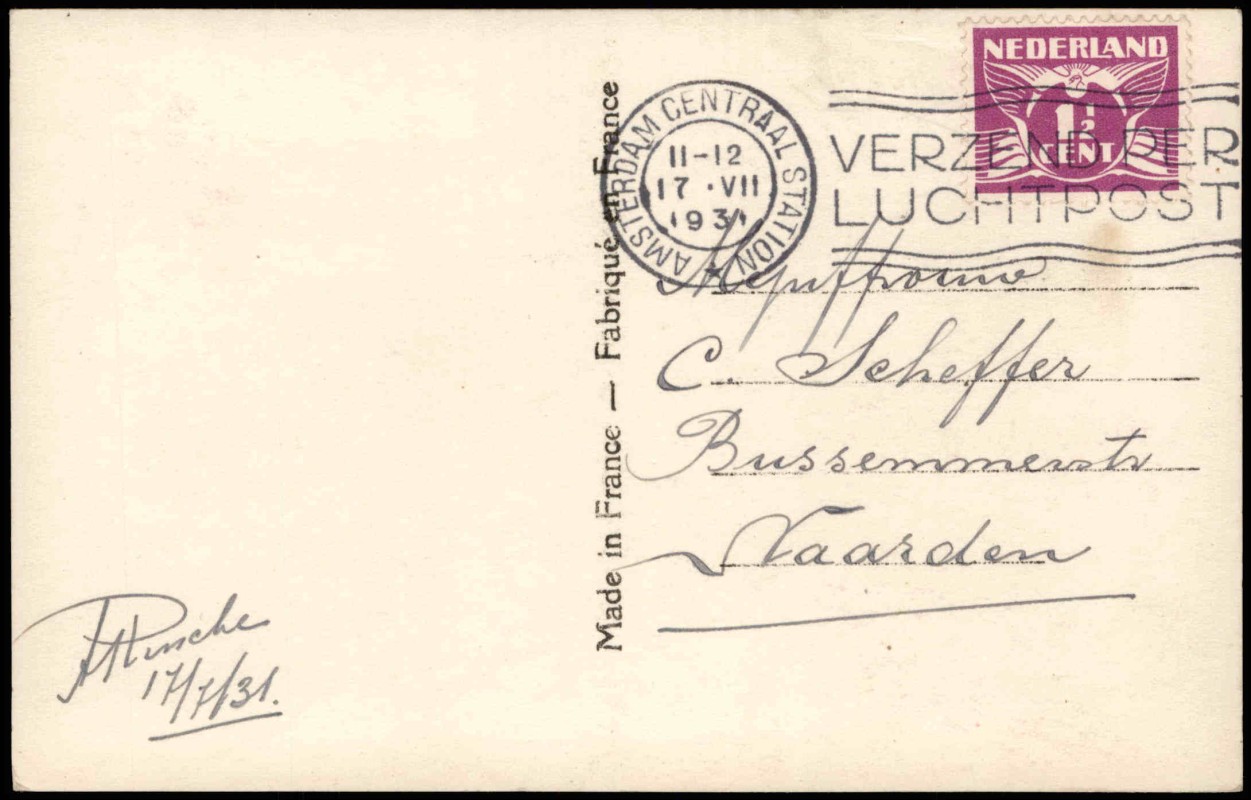 NEDERLAND
1½
CENT
AMSTERDAM CENTRAAL STATION
11-12
17 · VII
1931
VERZEND PER
LUCHTPOST
Made in France — Fabriqué en France
Mejuffrouw
C. Scheffer
Bussemmerstr
Naarden
17/7/31.